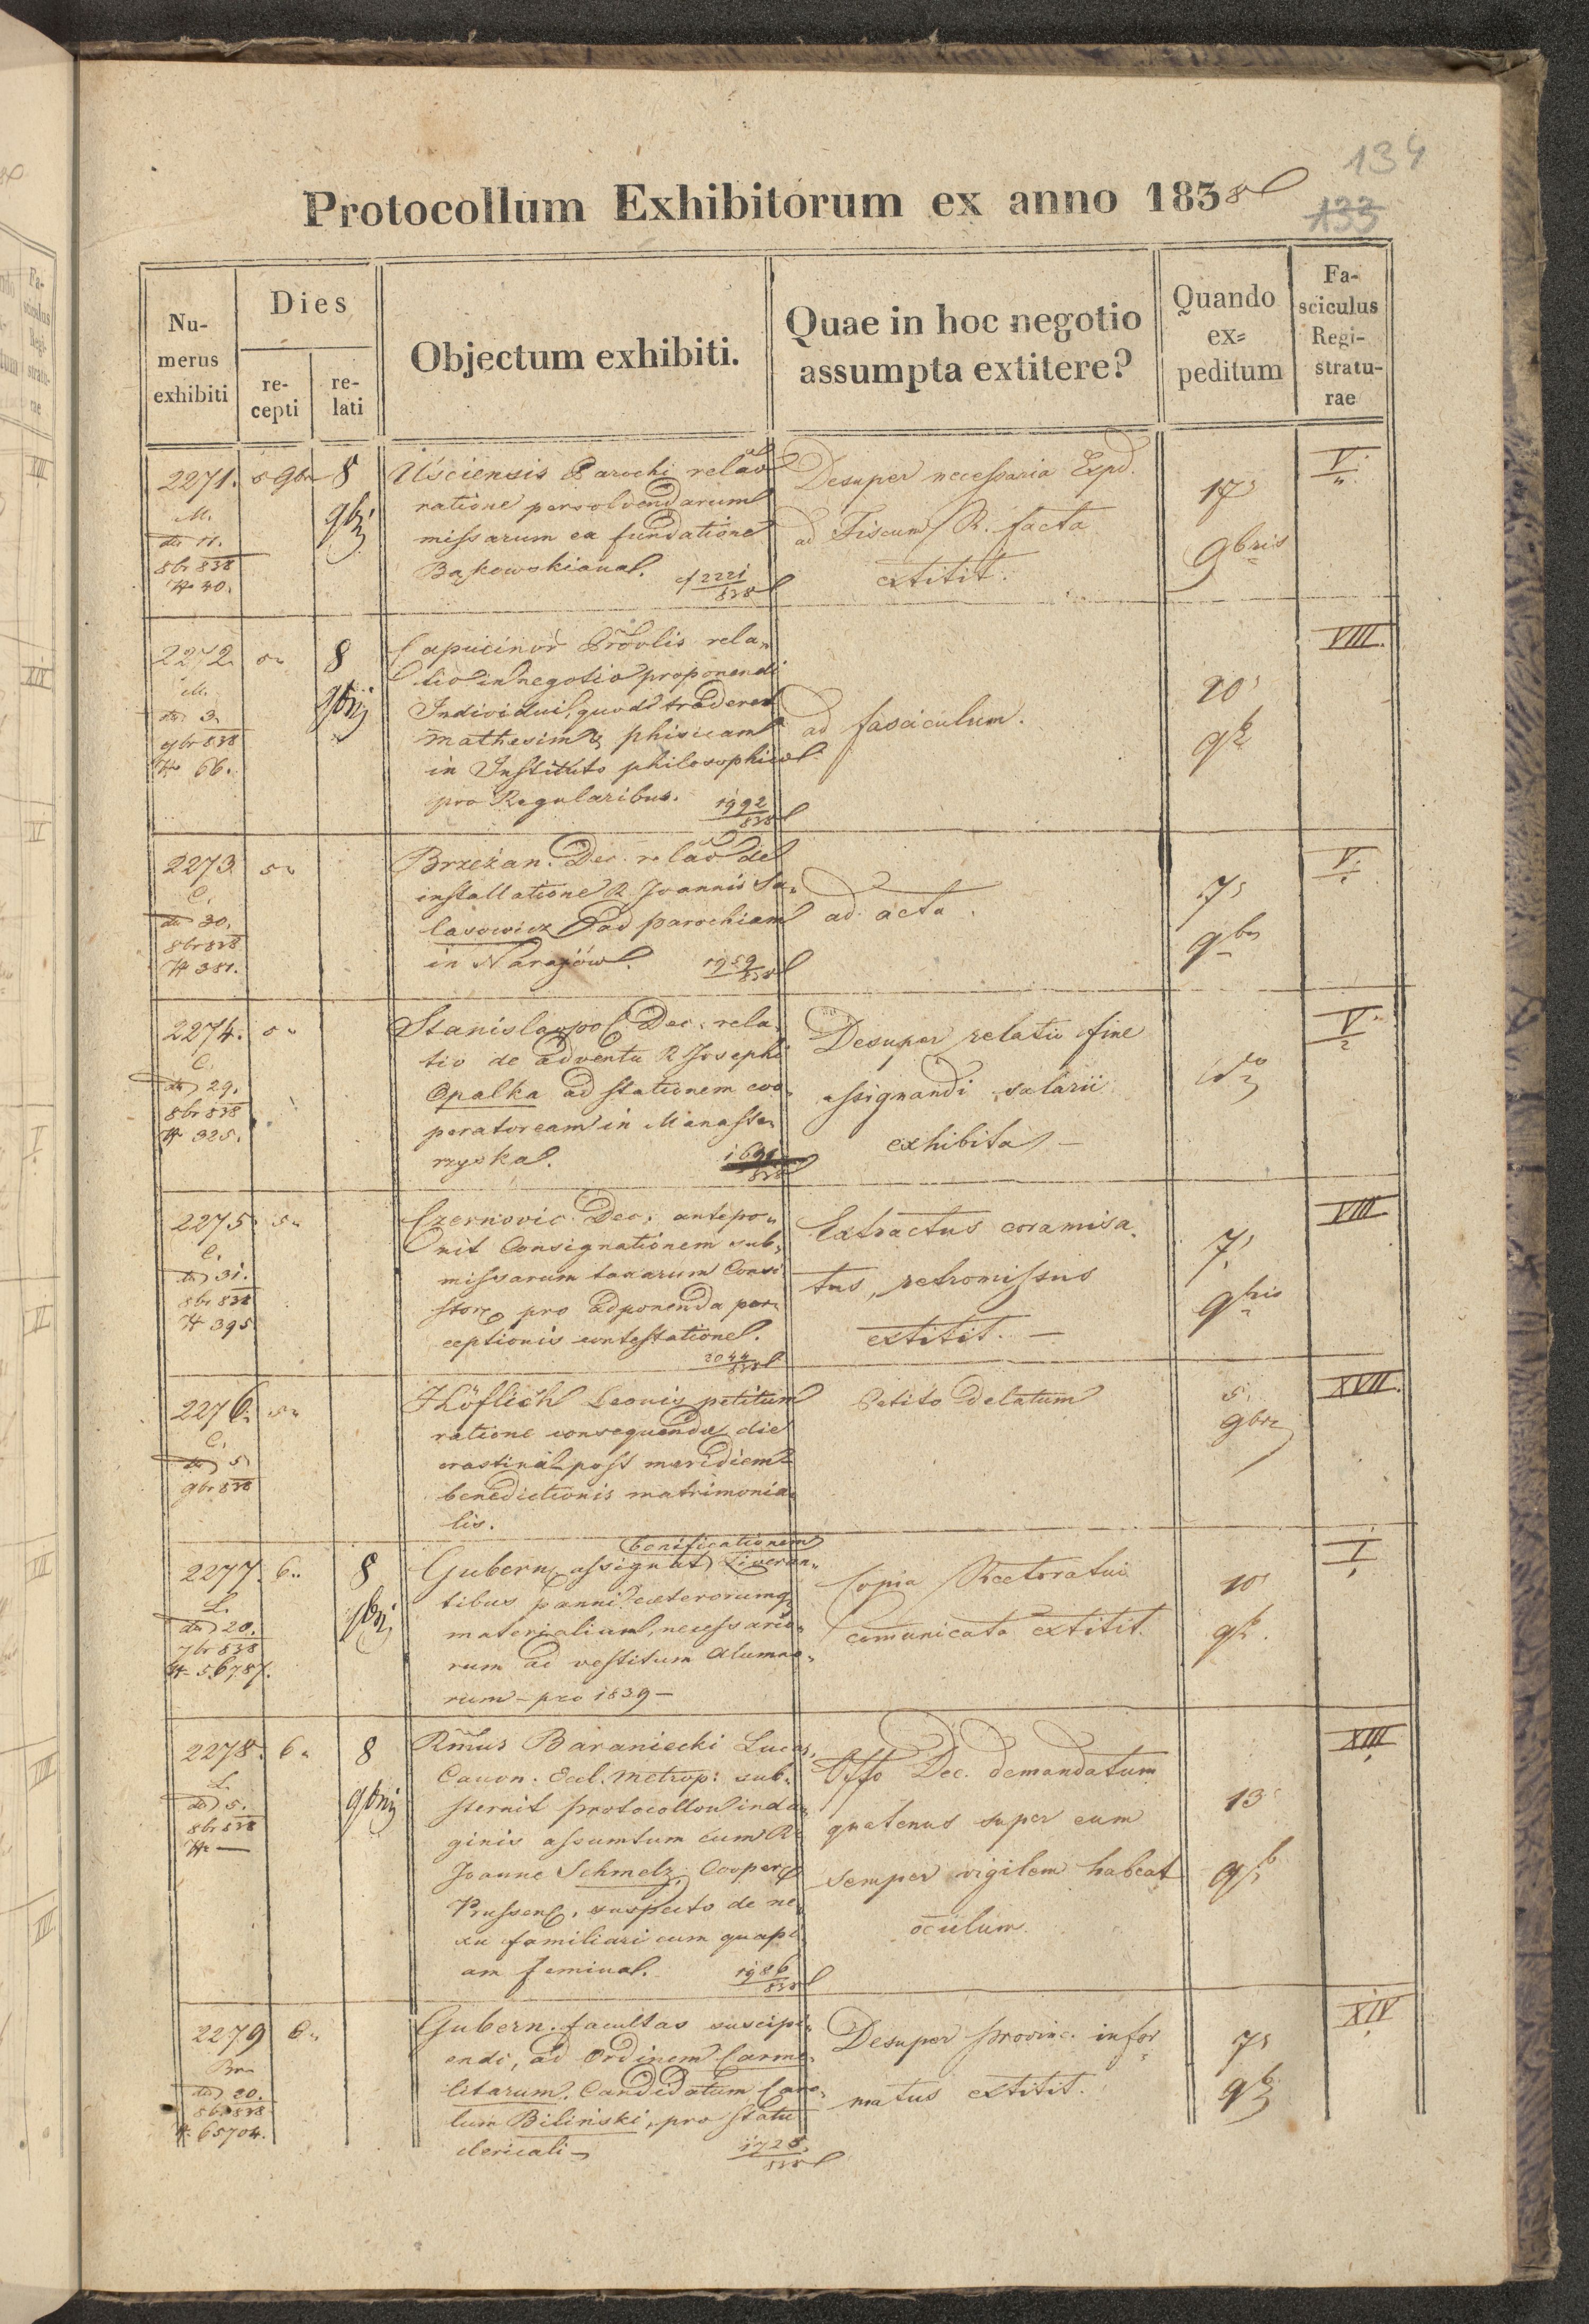 134
133
Protocollum Exhibitorum ex anno 1838
Nu-
merus
exhibiti
Dies
re-
cepti
re-
lati
Objectum exhibiti.
Quae in hoc negotio
assumpta extitere?
Quando
ex=
peditum
Fa-
sciculus
Regi-
stratu-
rae
2271. 5 9br 8
M.
dto 11.
8br 838
N 40.
9bris
Uściensis Parochi relao
ratione persolvendarum
missarum ex fundatione
Bąkowskiana.
2221
838
Desuper necessaria Expd.
ad Fiscum R. facta
extitit.
17
9bris
V.
2272. 5 8
M.
dto 3
9br 838
N 66.
Capucinor Provlis rela-
tio in negotio proponendi
Individui, quod traderet
mathesim & phisicam
in Instituto philosophico
pro Regularibus.
1992
838
ad fasciculum.
20
VIII.
2273. 5
C.
dto 30.
8br 838
N 381.
Brzeżan. Dec. relao de
installatione R. Joannis Sa-
lasowicz ad parochiam
in Narajów.
1959
838
ad acta.
7
9br
V.
2274. 5
C.
dto 29.
8br 838
N 325.
Stanislaopol Dec. rela-
tio de adventu R Josephi
Opalka ad stationem coo-
peratoream in Monaste-
rzyska.
838
Desuper relatio fine
assignandi salarii
exhibita —
V.
2275. 5
C.
dto 31.
8br 838
N 395
Czernovic. Dec. antepo-
nit Consignationem sub-
missarum taxarum Consi-
store pro adponenda per-
ceptionis contestatione.
2044
838
Extractus coramisa-
tus, retromissus
extitit. —
7.
9bris
VIII
2276. 5
C.
dto 5
9br 838
Höflich Leonis petitum
ratione consequendae die
crastina post meridiem
benedictionis matrimonia-
lis.
Petito delatum
5.
9br
XVII.
2277. 6 8
L.
dto 20.
7br 838
N 56787.
bonificationem
Gubern. assignat Liveran-
tibus panni caeterorumq
materialium, necessario-
rum ad vestitum Alumno-
rum — pro 1839 —
Copia Rectoratui
comunicata extitit.
10
I.
2278. 6 8
L.
dto 5.
8br 838
N —
Rmus Baraniecki Lucas,
Canon. Eccl. Metrop: sub-
sternit protocollon inda-
ginis assumtum cum R
Joanne Schmelz, Cooper
Prussen, suspecto de ne-
xu familiari cum quapi-
am femina.
1986
838
Offo Dec. demandatum
quatenus super eum
semper vigilem habeat
oculum.
13
XIII
2279 6
dto 20.
8br 838
N 65704.
Gubern. facultas suscipi-
endi, ad Ordinem Carme-
litarum. Candidatum Caro-
lum Biliński, pro statu
clericali —
1728
838
Desuper provinc. infor-
matus extitit.
7
XIV